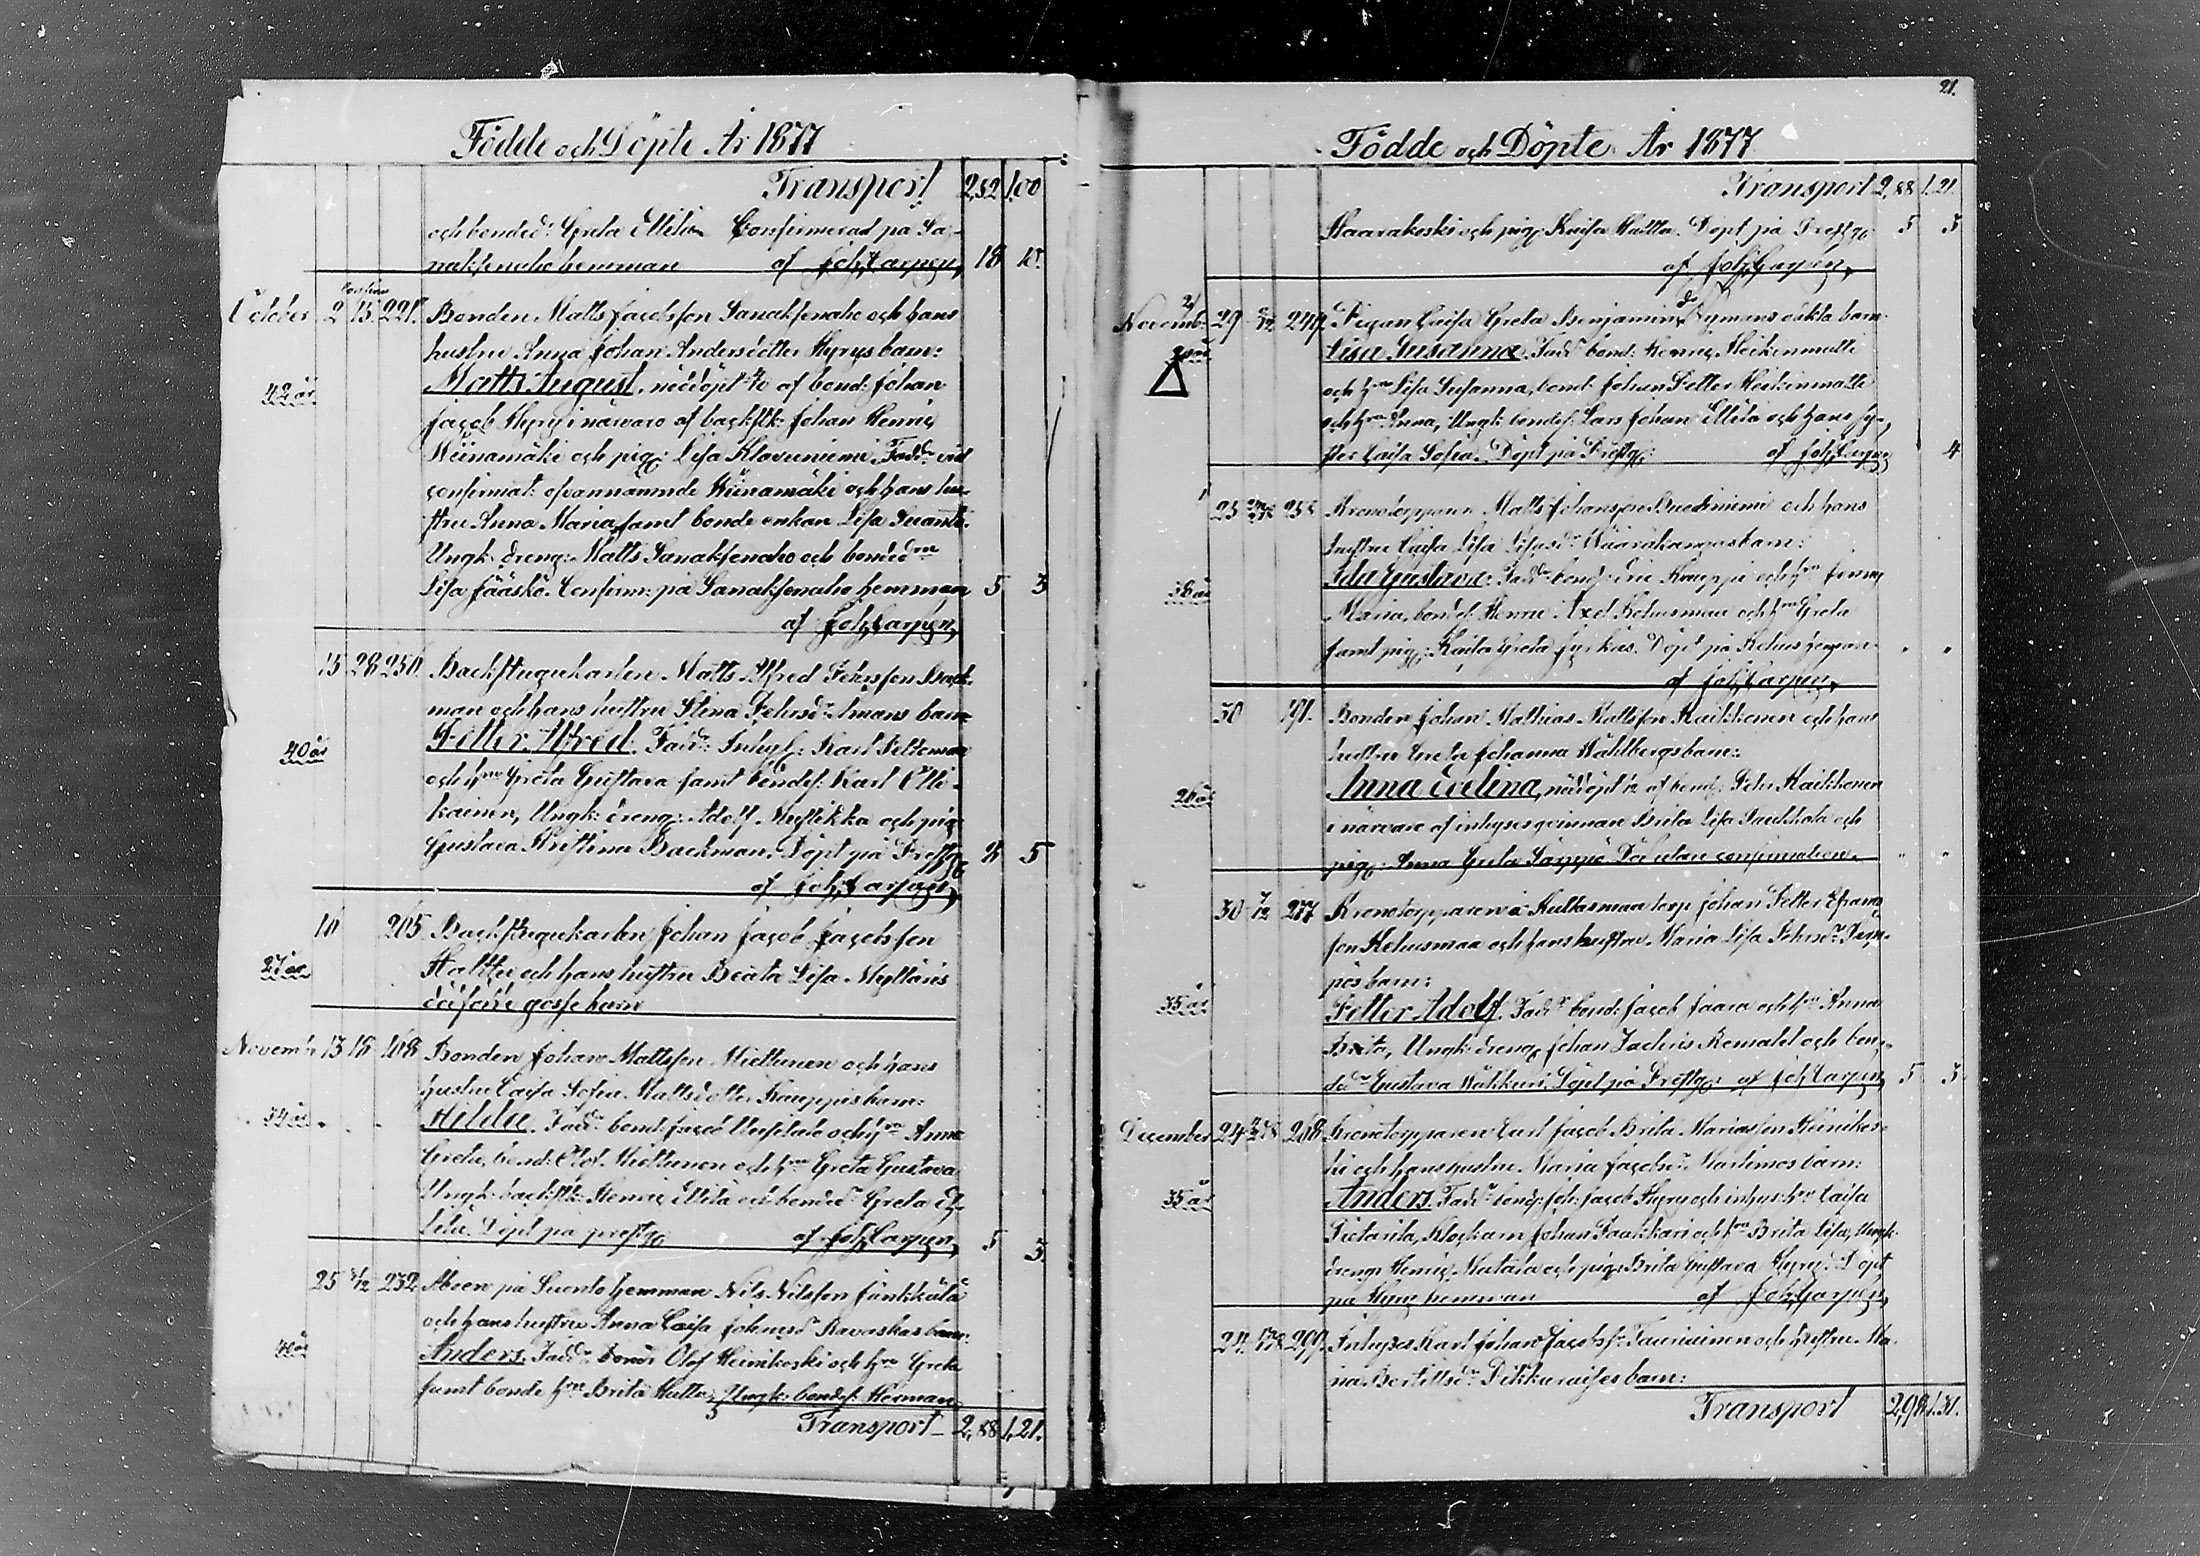 Födde och Döpte År 1877
Transport 2,82 1.00
och bonded: Greta Ellilä Confirmerad på Sa-
naksenaho hemman af Joh. Carpen, 18 10.
October 2 15 221. Bonden Matts Jacobsson Sanaksenaho och hans
hustru Anna Johan Andersdotter Hyrys barn:
42 år Matts August, nöddöpt 4/10 af bond: Johan
Jacob Hyry i närvaro af backstk: Johan Henric
Wiinamäki och pig: Lisa Klaviniemi, Fadd. vid
confirmat: ofvannämnde Wiinamäki och hans hu-
stru Anna Maria samt bonde enkan Lisa
Ungk: dreng: Matts Sanaksenaho och bonded:
Lisa Jääskö. Confirm: på Sanaksenaho hemman 5 3
af Joh. Carpen,
15 28 250. Backstugukarlen Matts Alfred Pehrsson Back-
man och hans hustru Stina Pehrsdr. barn
40 år Petter Alfred. Fadd: Inhys: Karl
och hru Greta Gustava samt bondes: Karl Olli-
kainen, Ungk: dreng: Adolf Myllikka och pig
Gustava Kristina Backman. Döpt på Prestg: 5
af Joh. Carpen,
16 205 Backstugukarlen Johan Jacob Jacobsson
27 år Haltta och hans hustru Beata Lisa Mylläris
dödfödde gossebarn
Novemb 13 18 108 Bonden Johan Mattsson Miettunen och hans
hustru Caisa Sofia Mattsdotter Kauppis barn:
34 år Hilda. Fadd: bond: Jacob och hru Anna
Greta, bond: Olof Miettunen och hru Greta Gustava
Ungk: backstk: Henric Ellilä och bonded: Greta El-
lilä. Döpt på prestg af Joh. Carpen, 5 3
25 2/12 232 Åboen på Suonto hemman Nils Nilsson Junkkälä
och hans hustru Anna Caisa Johansdr. Ravaskas barn:
40 år Anders. Fadd: bond: Olof Heinikoski och hru Greta
samt bonde hru Brita Hutta, Ungk: bondes: Herman
Transport 2,88 1,21.
21.
Födde och Döpte År 1877
Transport 2,88 1.21.
Haarakoski och pig: Kaisa Haltta. Döpt på Prestg: 5 3
af Joh. Carpen,
Novemb. 29 2/12 249. Pigan Caisa Greta Benjaminsdr. oäkta barn
Lisa Susanna. Fadd: bond: Henric Heikinmatti
och hru Lisa Susanna, bond: Johan Petter Heikinmatti
och hru Anna, Ungk: bondes: Lars Johan Ellilä och hans sy-
ster Caisa Sofia. Döpt på Prestg: af Joh. Carpen 4
25 258 Kronotorparen Matts Johansson och hans
hustru Caisa Lisa Lisasdr. Määräkangas barn:
38 år Ida Gustava: Fadd: bond: Eric Kauppi och hru Jenny
Maria, bondes: Henric Axel Kelusmaa och hru Greta
samt pig: Kaisa Greta Jyrkäs. Döpt på Kelus hemman
af Joh. Carpen,
30 191. Bonden Johan Mathias Mattsson Kaikkonen och hans
hustru Greta Johanna Wåhlbergs barn:
26 år Anna Evelina, nöddöpt af bond: Pehr Kaikkonen
i närvaro af inhysesqvinnan Brita Lisa Saukkola och
pig: Anna Greta Säppä Död utan confirmation.
30 7/12 277 Kronotorparen å Kultasmaa torp Johan Petter Efraims-
son Kelusmaa och hans hustru Maria Lisa Pehrsdr.
päs barn:
35 år Petter Adolf. Fadd: bond: Jacob Jaara och hru Anna
Brita, Ungk: dreng: Johan Zachris Remahl och bon-
dedr. Gustava Wälikuri. Döpt på Prestg: af Joh. Carpen 5 3
December 24 268 Kronotorparen Carl Jacob Brita Mariasson Heinikos-
ki och hans hustru Maria Jacobsdr. Martimos barn:
35 år Anders. Fadd: bond: Joh: Jacob Hyry och inhys: hru Caisa
Pietarila, Klockaren Johan Paakkari och hru Brita Lisa, Ungk:
dreng: Henric Matala och pig: Brita Gustava Hyry. Döpt
på Hyry hemman af Joh. Carpen,
24 299. Inhyses Karl Johan Jacobss: Tauriainen och hustru Ma-
ria Bertillsdr. barn:
Transport 2,98 1.31.